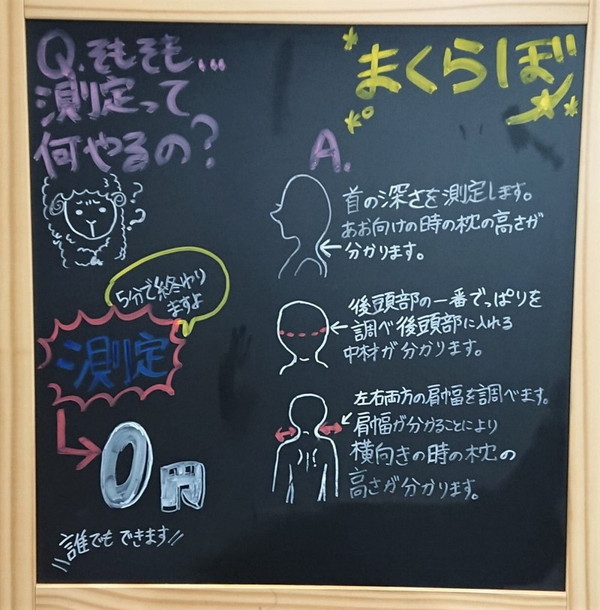 Q.そもそも...
測定って
何やるの?
まくらぼ
A.
首の深さを測定します。
あお向けの時の枕の高さが
分かります。
後頭部の一番でっぱりを
調べ後頭部に入れる
中材が分かります。
左右両方の肩幅を調べます。
肩幅が分かることにより
横向きの時の枕の
高さが分かります。
??
5分で終わり
ますよ
測定
0円
誰でもできます!!